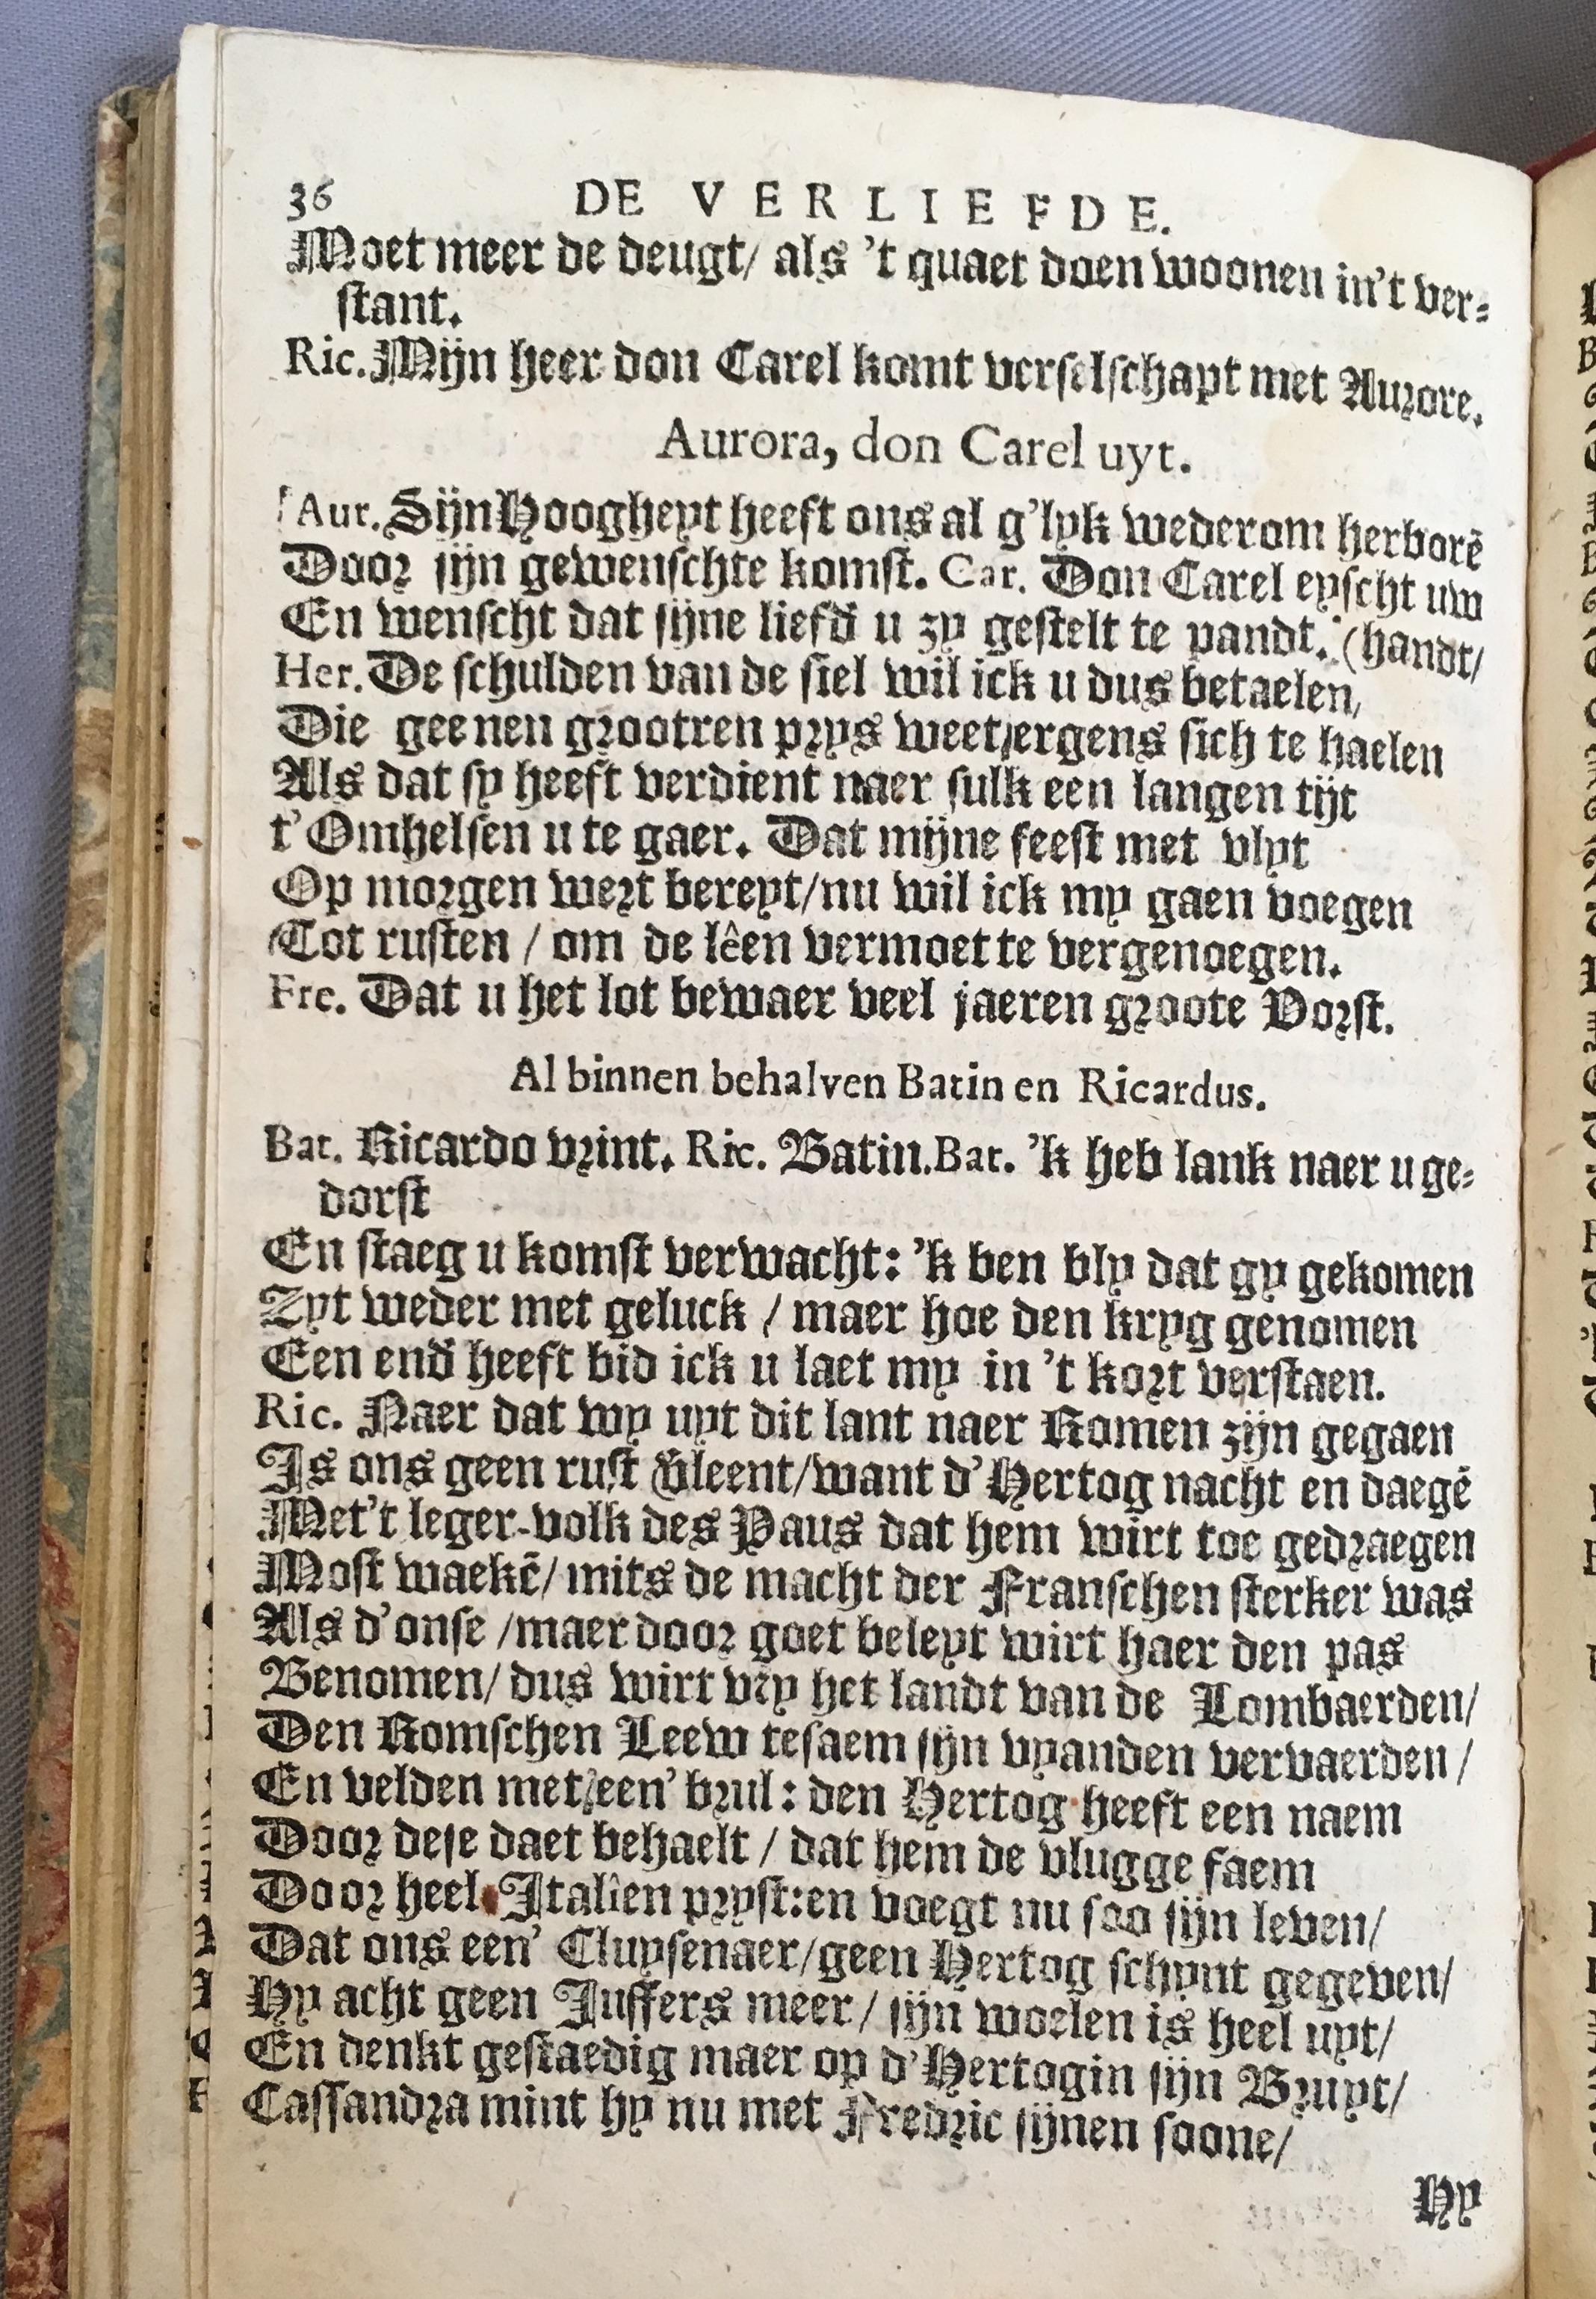 36 DE VERLIEFDE.
Moet meer de deugt/ als 't quaet doen woonen in't ver-
stant.
Ric. Mijn heer don Carel komt verselschapt met Aurore.
Aurora, don Carel uyt.
Aur. Sijn Hoogheyt heeft ons al g'lyk wederom herborē
Door sijn gewenschte komst. Car. Don Carel eyscht uw
En wenscht dat sijne liefd̄ u zy gestelt te pandt. (handt/
Her. De schulden van de siel wil ick u dus betaelen,
Die geenen grootren prys weet ergens sich te haelen
Als dat sy heeft verdient naer sulk een langen tijt
t'Omhelsen u te gaer. Dat mijne feest met vlyt
Op morgen wert bereyt/ nu wil ick my gaen voegen
Tot rusten / om de lêen vermoet te vergenoegen.
Fre. Dat u het lot bewaer veel jaeren groote Vorst.
Al binnen behalven Batin en Ricardus.
Bat. Ricardo vrint. Ric. Batin. Bat. 'k heb lank naer u ge-
dorst
En staeg u komst verwacht: 'k ben bly dat gy gekomen
Zyt weder met geluck / maer hoe den kryg genomen
Een end̄ heeft bid ick u laet my in 't kort verstaen.
Ric. Naer dat wy uyt dit lant naer Romen zijn gegaen
Is ons geen rust v̄leent/ want d'Hertog nacht en daegē
Met't leger-volk des Paus dat hem wirt toe gedraegen
Most waekē/ mits de macht der Franschen sterker was
Als d'onse / maer door goet beleyt wirt haer den pas
Benomen/ dus wirt vry het landt van de Lombaerden/
Den Romschen Leew tesaem sijn vyanden vervaerden /
En velden met een' brul: den Hertog heeft een naem
Door dese daet behaelt / dat hem de vlugge faem
Door heel Italîen pryst: en voegt nu soo sijn leven/
Dat ons een' Cluysenaer/ geen Hertog schynt gegeven/
Hy acht geen Juffers meer / sijn woelen is heel uyt/
En denkt gestaedig maer op d'Hertogin sijn Bruyt/
Cassandra mint hy nu met Fredric sijnen soone/
Hy